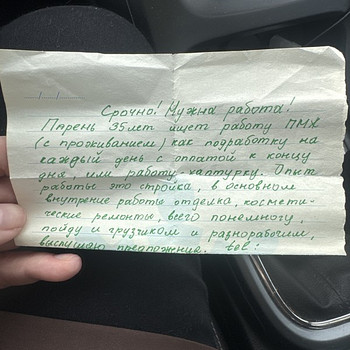 Срочно! Нужна работа!
Парень 35лет ищет работу ПМЖ
(с проживанием) как подработку на
каждый день с оплатой к концу
дня, или работу-халтурку. Опыт
работы это стройка, в основном
внутрение работы отделка, космети-
ческие ремонты, всего понемногу,
пойду и грузчиком и разнорабочим,
выслушаю предложения. tel: